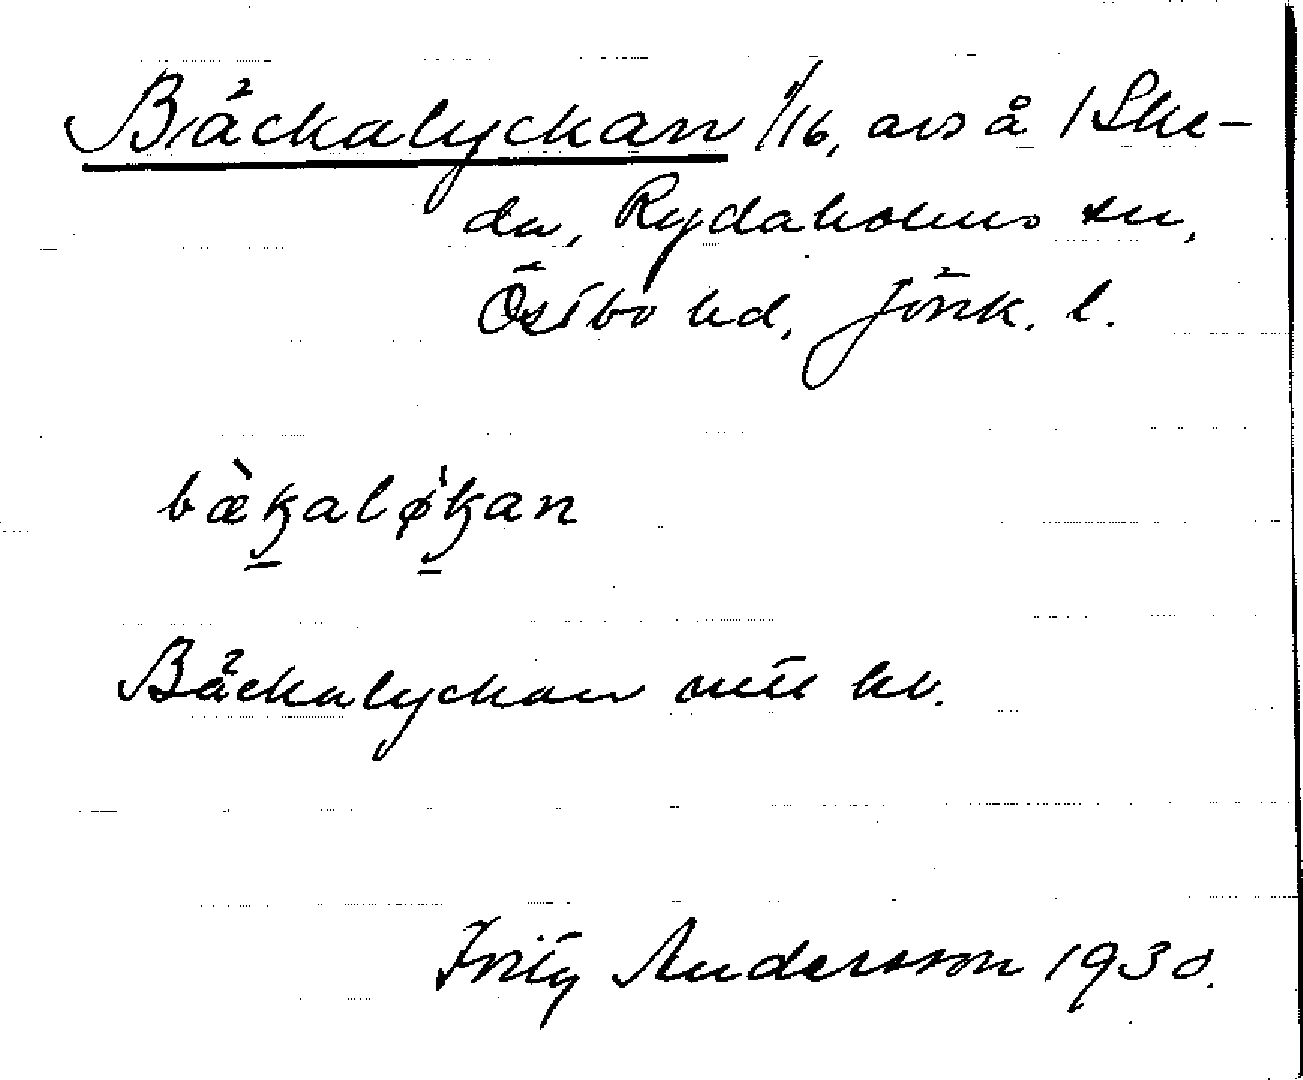 Bäckalyckan 1/16, avs å 1 Ske-
da, Rydaholms sn,
Östbo hd, Jönk. l.
bæ̀kaløkan
Bäckalyckan mtl hv.
Fritz Andersson 1930.